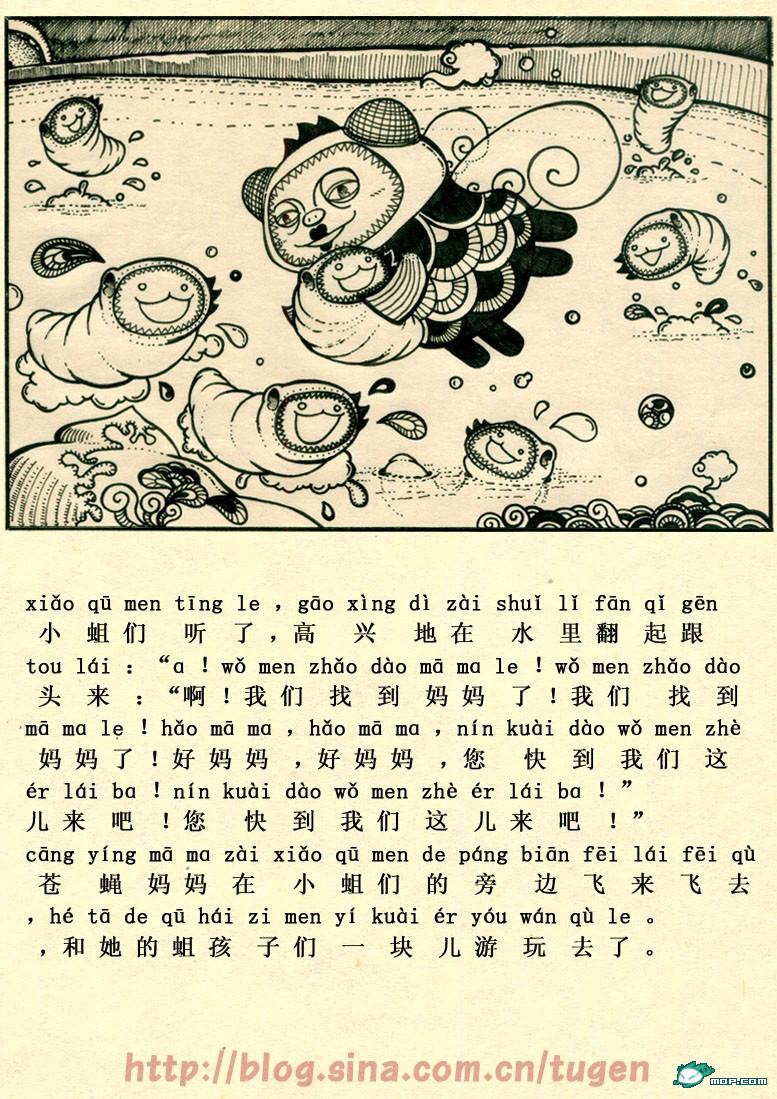 z
xiǎo qū men tīng le ，gāo xìng dì zài shuǐ lǐ fān qǐ gēn
小 蛆 们 听 了 ，高 兴 地 在 水 里 翻 起 跟
tou lái ：“a ！wǒ men zhǎo dào mā ma le ！wǒ men zhǎo dào
头 来 ：“啊 ！我 们 找 到 妈 妈 了 ！我 们 找 到
mā ma le ！hǎo mā ma ，hǎo mā ma ，nín kuài dào wǒ men zhè
妈 妈 了 ！好 妈 妈 ，好 妈 妈 ，您 快 到 我 们 这
ér lái ba ！nín kuài dào wǒ men zhè ér lái ba ！”
儿 来 吧 ！您 快 到 我 们 这 儿 来 吧 ！”
cāng yíng mā ma zài xiǎo qū men de páng biān fēi lái fēi qù
苍 蝇 妈 妈 在 小 蛆 们 的 旁 边 飞 来 飞 去
，hé tā de qū hái zi men yí kuài ér yóu wán qù le 。
，和 她 的 蛆 孩 子 们 一 块 儿 游 玩 去 了 。
http://blog.sina.com.cn/tugen
MOP.COM